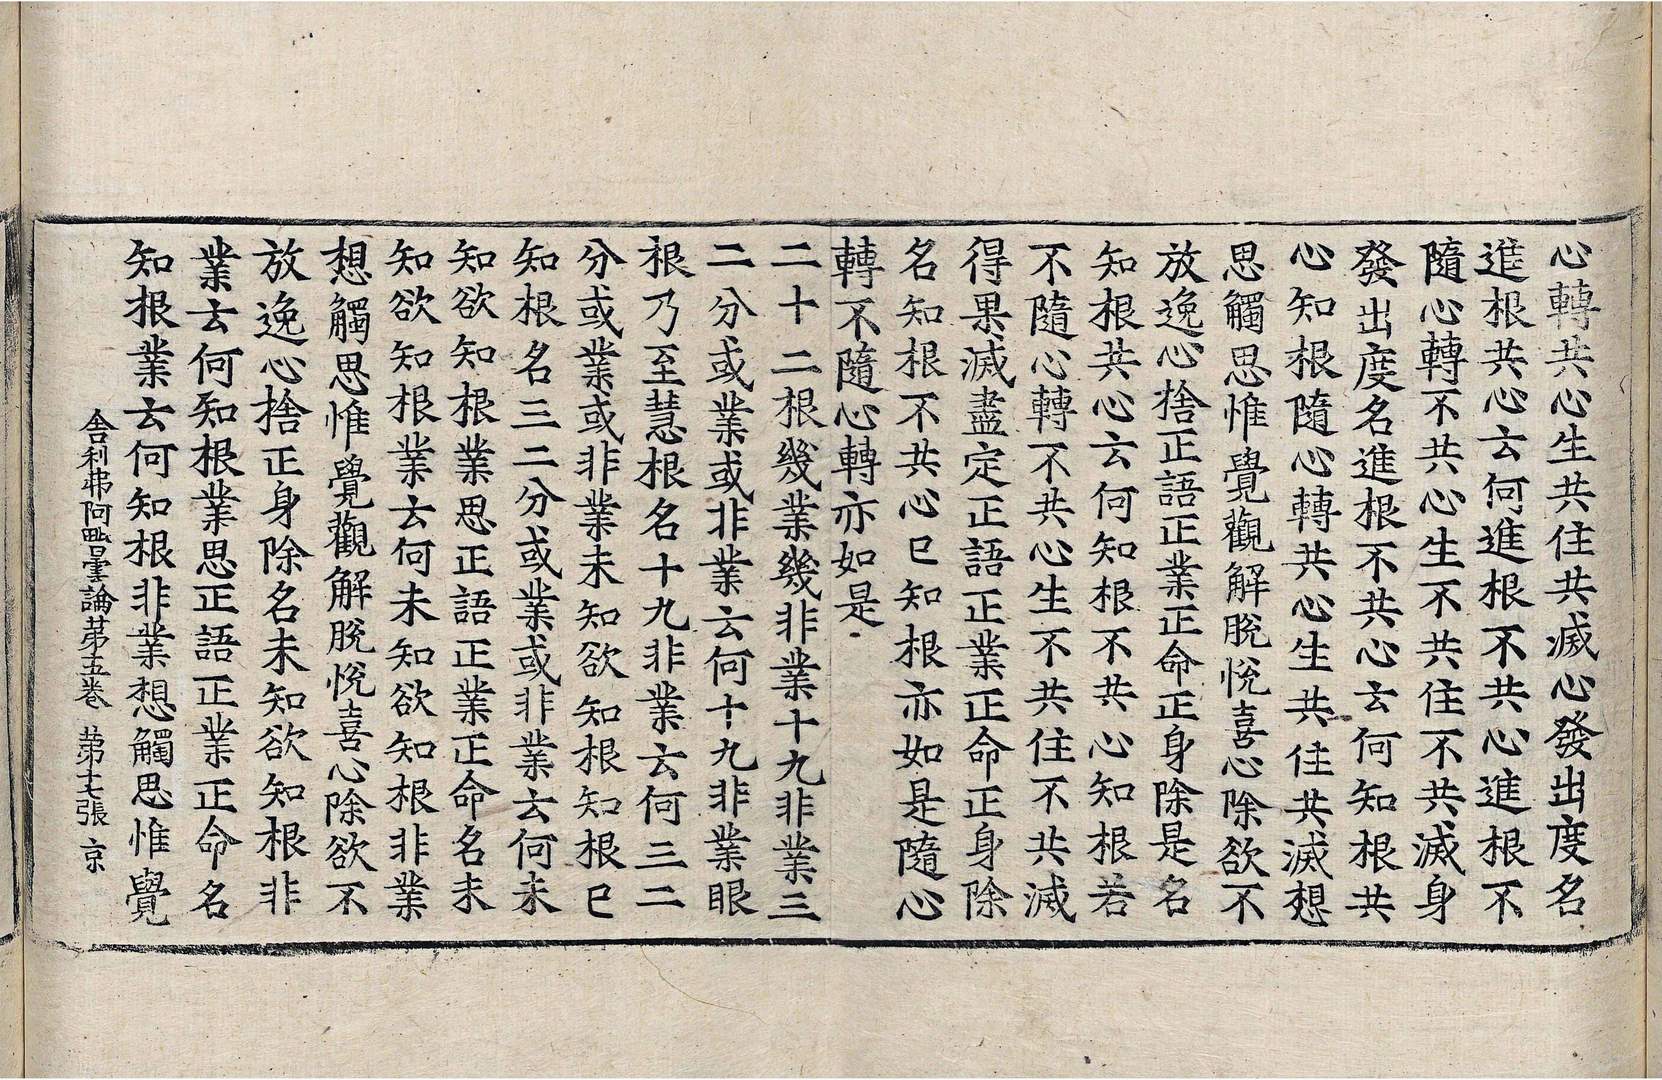 心轉共心生共住共滅心發出度名
進根共心云何進根不共心進根不
隨心轉不共心生不共住不共滅身
發出度名進根不共心云何知根共
心知根隨心轉共心生共住共滅想
思觸思惟覺觀解脫悅喜心除欲不
放逸心捨正語正業正命正身除是名
知根共心云何知根不共心知根若
不隨心轉不共心生不共住不共滅
得果滅盡定正語正業正命正身除
名知根不共心已知根亦如是隨心
轉不隨心轉亦如是
二十二根幾業幾非業十九非業三
二分或業或非業云何十九非業眼
根乃至慧根名十九非業云何三二
分或業或非業未知欲知根知根已
知根名三二分或業或非業云何未
知欲知根業思正語正業正命名未
知欲知根業云何未知欲知根非業
想觸思惟覺觀解脫悅喜心除欲不
放逸心捨正身除名未知欲知根非
業云何知根業思正語正業正命名
知根業云何知根非業想觸思惟覺
舍利弗阿毗曇論第五卷 第十七張 京